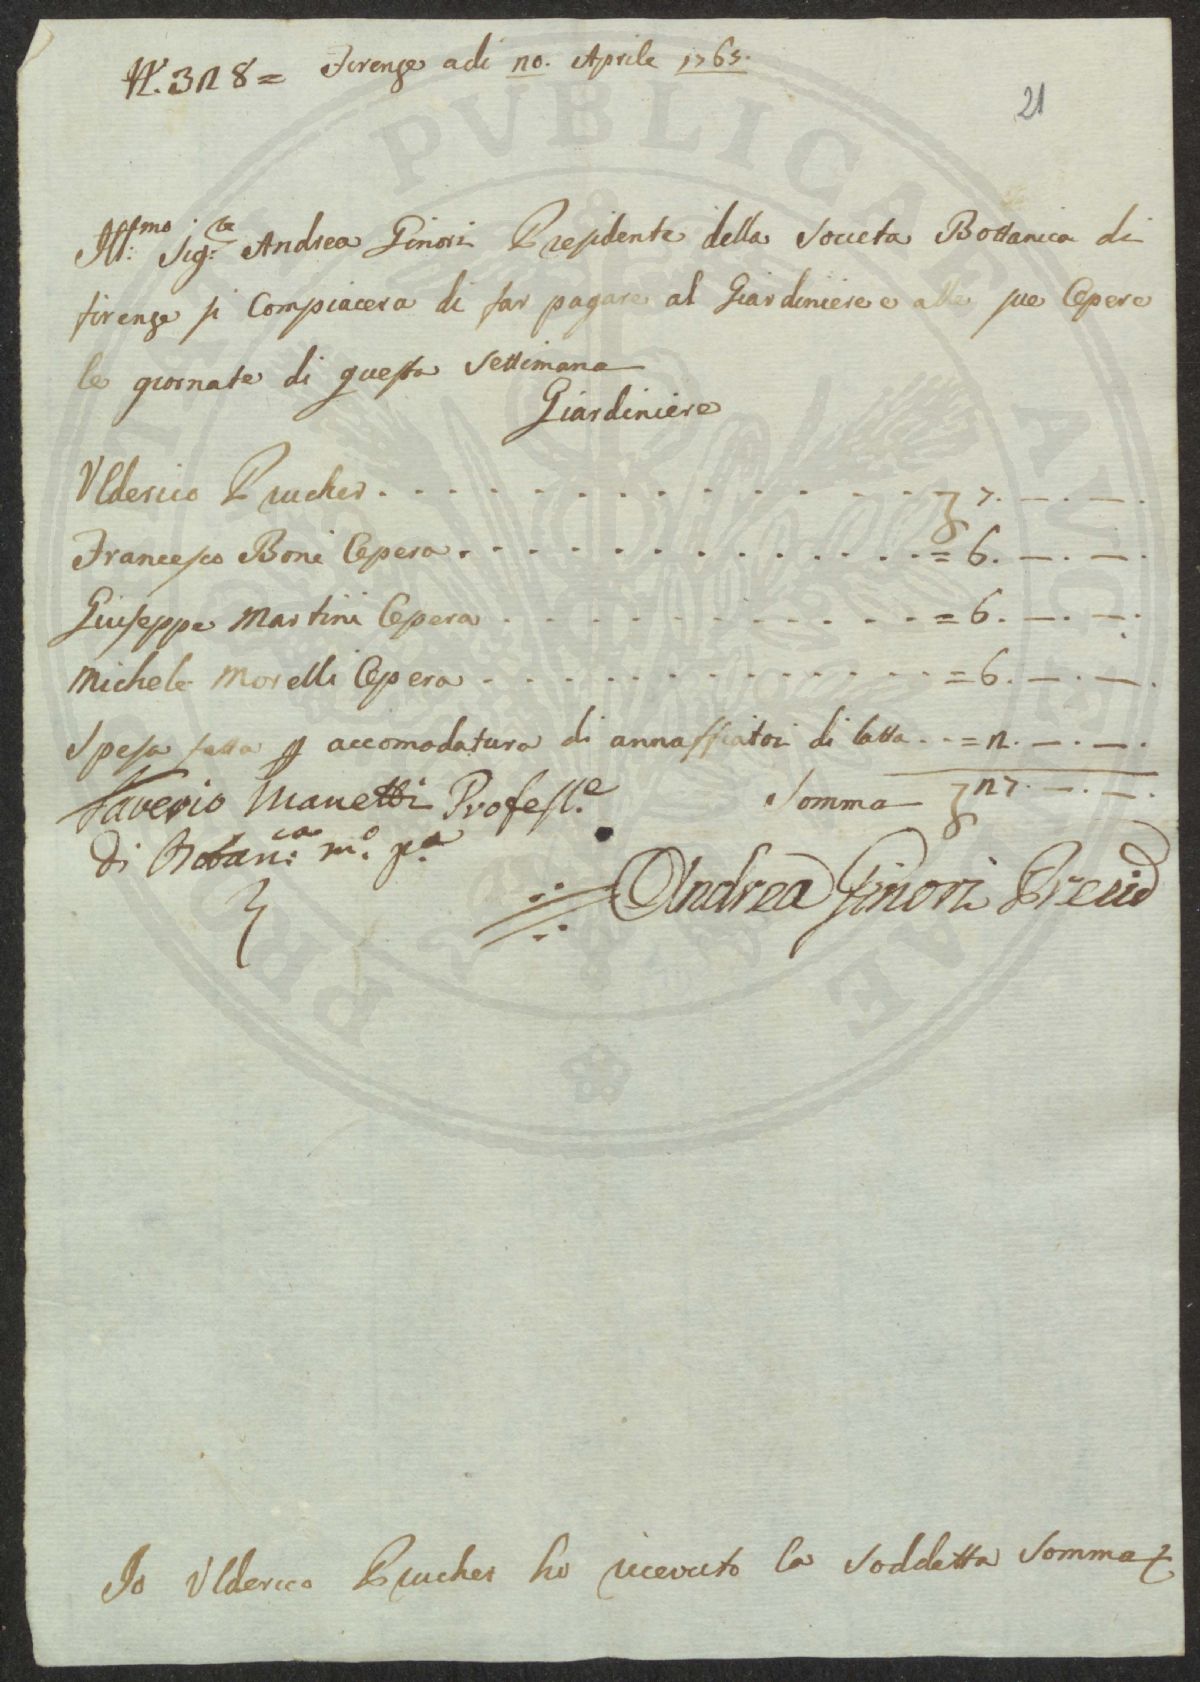 N. 328 = Firenze adi 20. Aprile 1765.
21
Ill:mo Sig:re Andrea Ginori Presidente della Societa Bottanica di
firenze si Compiacera di far pagare al Giardiniere e alle sue Opere
le giornate di questa Settimana
Giardiniere
Vlderico Prucher. . . . . . . . . . . . . . . . . £ 7. —. —.
Francesco Boni Opera. . . . . . . . . . . . . . . = 6. —. —.
Giuseppe Martini Opera . . . . . . . . . . . . . = 6. —. —.
Michele Morelli Opera . . . . . . . . . . . . . . = 6. —. —.
Spesa fatta p accomodatura di annaffiatoi di latta . . = 2. —. —.
Saverio Manetti Profess.e Somma £ 27. —. —.
di Botan:ca m.o p.a
Andrea Ginori Presid
Io Vlderico Prucher ho ricevuto la Soddetta Somma
PROSPERITATI PVBLICAE AVGENDAE